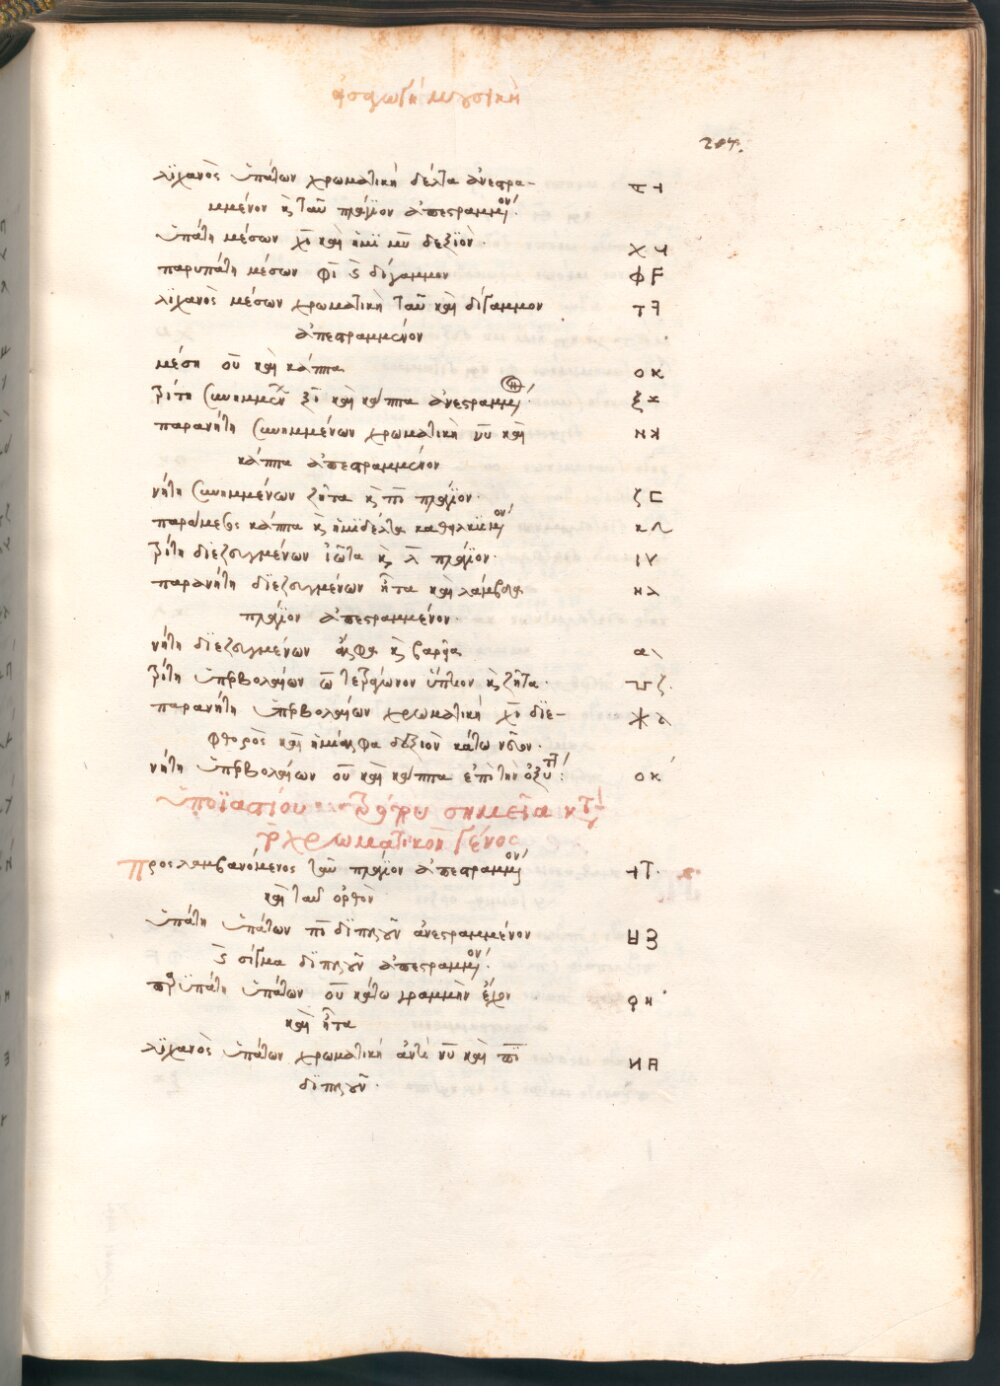 λϊχανὸς ὑπάτων χρωματικὴ δέλτα ἀνεστρα-
μμένον κỳ ταῦ πλάγϊον ἀπεστραμμένον·
ὑπάτη μέσων χῖ καὶ ἡμϊ μῦ δεξϊὸν·
παρυπάτη μέσων φῖ κỳ δίγαμμον
λϊχανὸς μέσων χρωματικὴ ταῦ καὶ δίγαμμον
ἀπεστραμμένον
μέση οὖ καὶ κάππα
τρίτη συνημμένων ξῖ καὶ κάππα ἀνεστραμμένον·
παρανήτη συνημμένων χρωματικὴ νῦ καὶ
κάππα ἀπεστραμμένον
νήτη συνημμένων ζῆτα κỳ πῖ πλάγϊον·
παράμεσος κάππα κỳ ἡμϊδέλτα καθηλκϊσμένον
τρίτη διεζευγμένων ἰῶτα κỳ λ πλάγϊον·
παρανήτη διεζευγμένων ἦτα καὶ λάμβδα
πλάγϊον ἀπεστραμμένον·
νήτη διεζευγμένων ἄλφα κỳ βαρεῖα
τρίτη ὑπερβολαίων ὦ τετράγωνον ὕπτιον κỳ ζῆτα·
παρανήτη ὑπερβολαίων χρωματικὴ χῖ διε-
φθορὸς καὶ ἡμίαλφα δεξϊὸν κάτω νεῦον·
νήτη ὑπερβολαίων οὖ καὶ κάππα ἐπὶ τὴν ὀξύτητα
ὑποϊαστίου τρόπου σημεῖα κατὰ
τὸ χρωματικὸν γένος
προσλαμβανόμενος ταῦ πλάγϊον ἀπεστραμμένον
καὶ ταῦ ὀρθὸν
ὑπάτη ὑπάτων πῖ διπλοῦν ἀνεστραμμένον
κỳ σίγμα διπλοῦν ἀπεστραμμένον·
παρυπάτη ὑπάτων οὖ κάτω γραμμὴν ἔχον
καὶ ἦτα
λϊχανὸς ὑπάτων χρωματικὴ ἀντὶ νῦ καὶ πῖ
διπλοῦν·